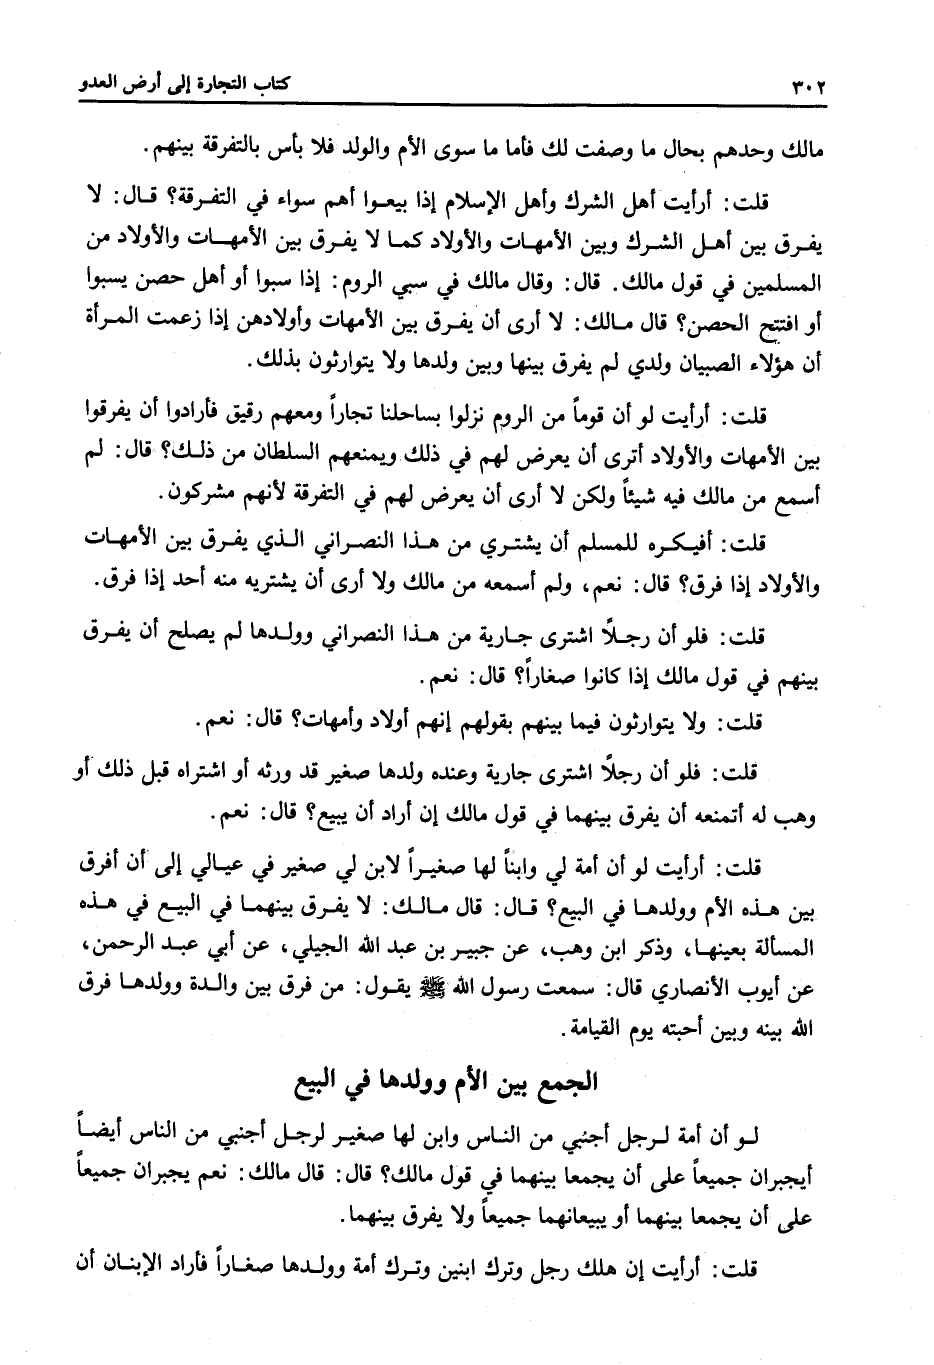 ٣٠٢ كتاب التجارة إلى أرض العدو
مالك وحدهم بحال ما وصفت لك فأما ما سوى الأم والولد فلا بأس بالتفرقة بينهم.
قلت: أرأيت أهل الشرك وأهل الإسلام إذا بيعوا أهم سواء في التفرقة؟ قال: لا
يفرق بين أهل الشرك وبين الأمهات والأولاد كما لا يفرق بين الأمهات والأولاد من
المسلمين في قول مالك. قال: وقال مالك في سبي الروم: إذا سبوا أو أهل حصن يسبوا
أو افتتح الحصن؟ قال مالك: لا أرى أن يفرق بين الأمهات وأولادهن إذا زعمت المرأة
أن هؤلاء الصبيان ولدي لم يفرق بينها وبين ولدها ولا يتوارثون بذلك.
قلت: أرأيت لو أن قوماً من الروم نزلوا بساحلنا تجاراً ومعهم رقيق فأرادوا أن يفرقوا
بين الأمهات والأولاد أترى أن يعرض لهم في ذلك ويمنعهم السلطان من ذلك؟ قال: لم
أسمع من مالك فيه شيئاً ولكن لا أرى أن يعرض لهم في التفرقة لأنهم مشركون.
قلت: أفيكره للمسلم أن يشتري من هذا النصراني الذي يفرق بين الأمهات
والأولاد إذا فرق؟ قال: نعم، ولم أسمعه من مالك ولا أرى أن يشتريه منه أحد إذا فرق.
قلت: فلو أن رجلاً اشترى جارية من هذا النصراني وولدها لم يصلح أن يفرق
بينهم في قول مالك إذا كانوا صغاراً؟ قال: نعم.
قلت: ولا يتوارثون فيما بينهم بقولهم إنهم أولاد وأمهات؟ قال: نعم.
قلت: فلو أن رجلاً اشترى جارية وعنده ولدها صغير قد ورثه أو اشتراه قبل ذلك أو
وهب له أتمنعه أن يفرق بينهما في قول مالك إن أراد أن يبيع؟ قال: نعم.
قلت: أرأيت لو أن أمة لي وابناً لها صغيراً لابن لي صغير في عيالي إلى أن أفرق
بين هذه الأم وولدها في البيع؟ قال: قال مالك: لا يفرق بينهما في البيع في هذه
المسألة بعينها، وذكر ابن وهب، عن جبير بن عبد الله الجيلي، عن أبي عبد الرحمن،
عن أيوب الأنصاري قال: سمعت رسول الله ﷺ يقول: من فرق بين والدة وولدها فرق
الله بينه وبين أحبته يوم القيامة.
الجمع بين الأم وولدها في البيع
لو أن أمة لرجل أجنبي من الناس وابن لها صغير لرجل أجنبي من الناس أيضاً
أيجبران جميعاً على أن يجمعا بينهما في قول مالك؟ قال: قال مالك: نعم يجبران جميعاً
على أن يجمعا بينهما أو يبيعانهما جميعاً ولا يفرق بينهما.
قلت: أرأيت إن هلك رجل وترك ابنين وترك أمة وولدها صغاراً فأراد الإبنان أن